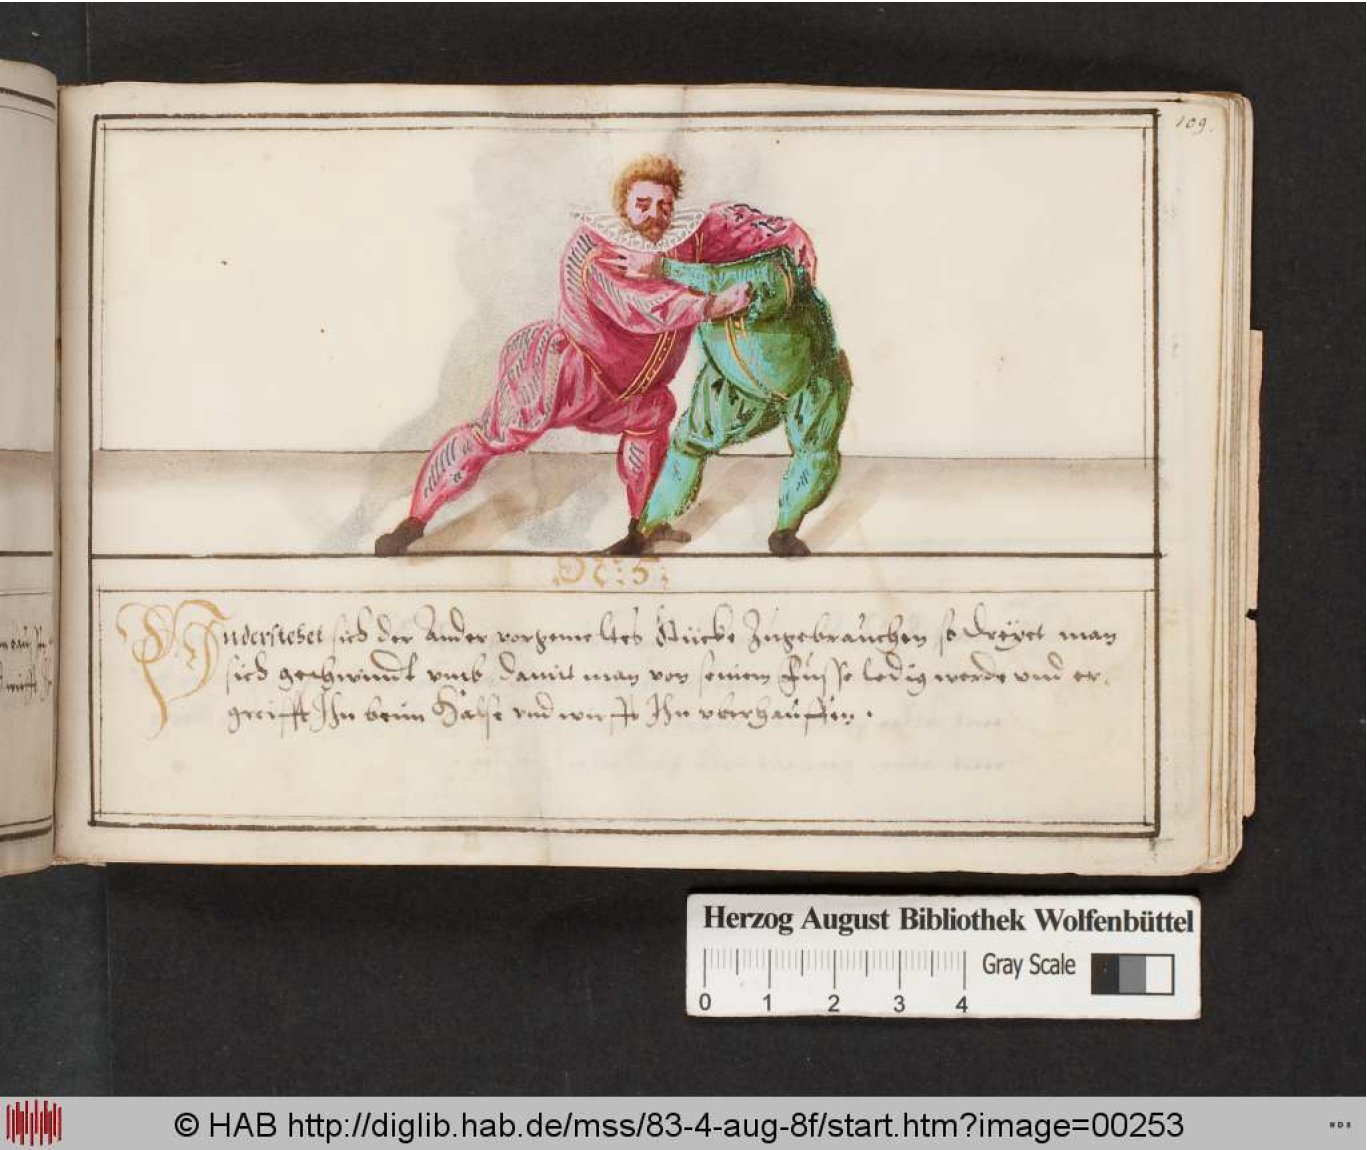 109.
Vnderstehet sich der Ander vorgemeltes Stücke Zugebrauchen so dreyet man
sich geschwindt vmb damit man von seinem Fusse ledig werde vnd er,
greifft Ihn beim Halse vnd wirfft Ihn vberhauffen.
Herzog August Bibliothek Wolfenbüttel
Gray Scale
0 1 2 3 4
© HAB http://diglib.hab.de/mss/83-4-aug-8f/start.htm?image=00253